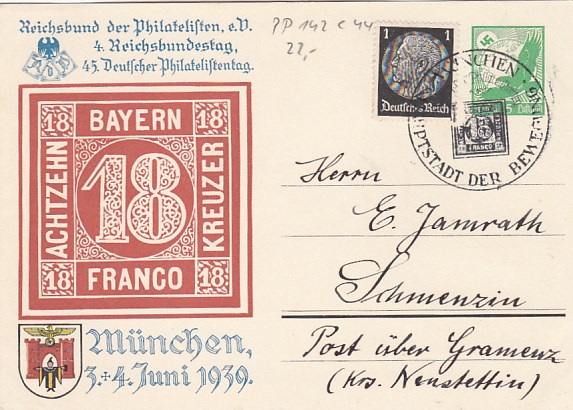 Reichsbund der Philatelisten, e.V.
4. Reichsbundestag,
45. Deutscher Philatelistentag.
PP 142 C 44
22,-
1 1
Deutsches Reich
MÜNCHEN
HAUPTSTADT DER BEWEGUNG
FRANCO
18 BAYERN 18
ACHTZEHN
18
KREUZER
18 FRANCO 18
Herrn
E. Jamrath
Schmenzin
Post über Gramenz
(Krs. Neustettin)
München,
3.+4. Juni 1939.